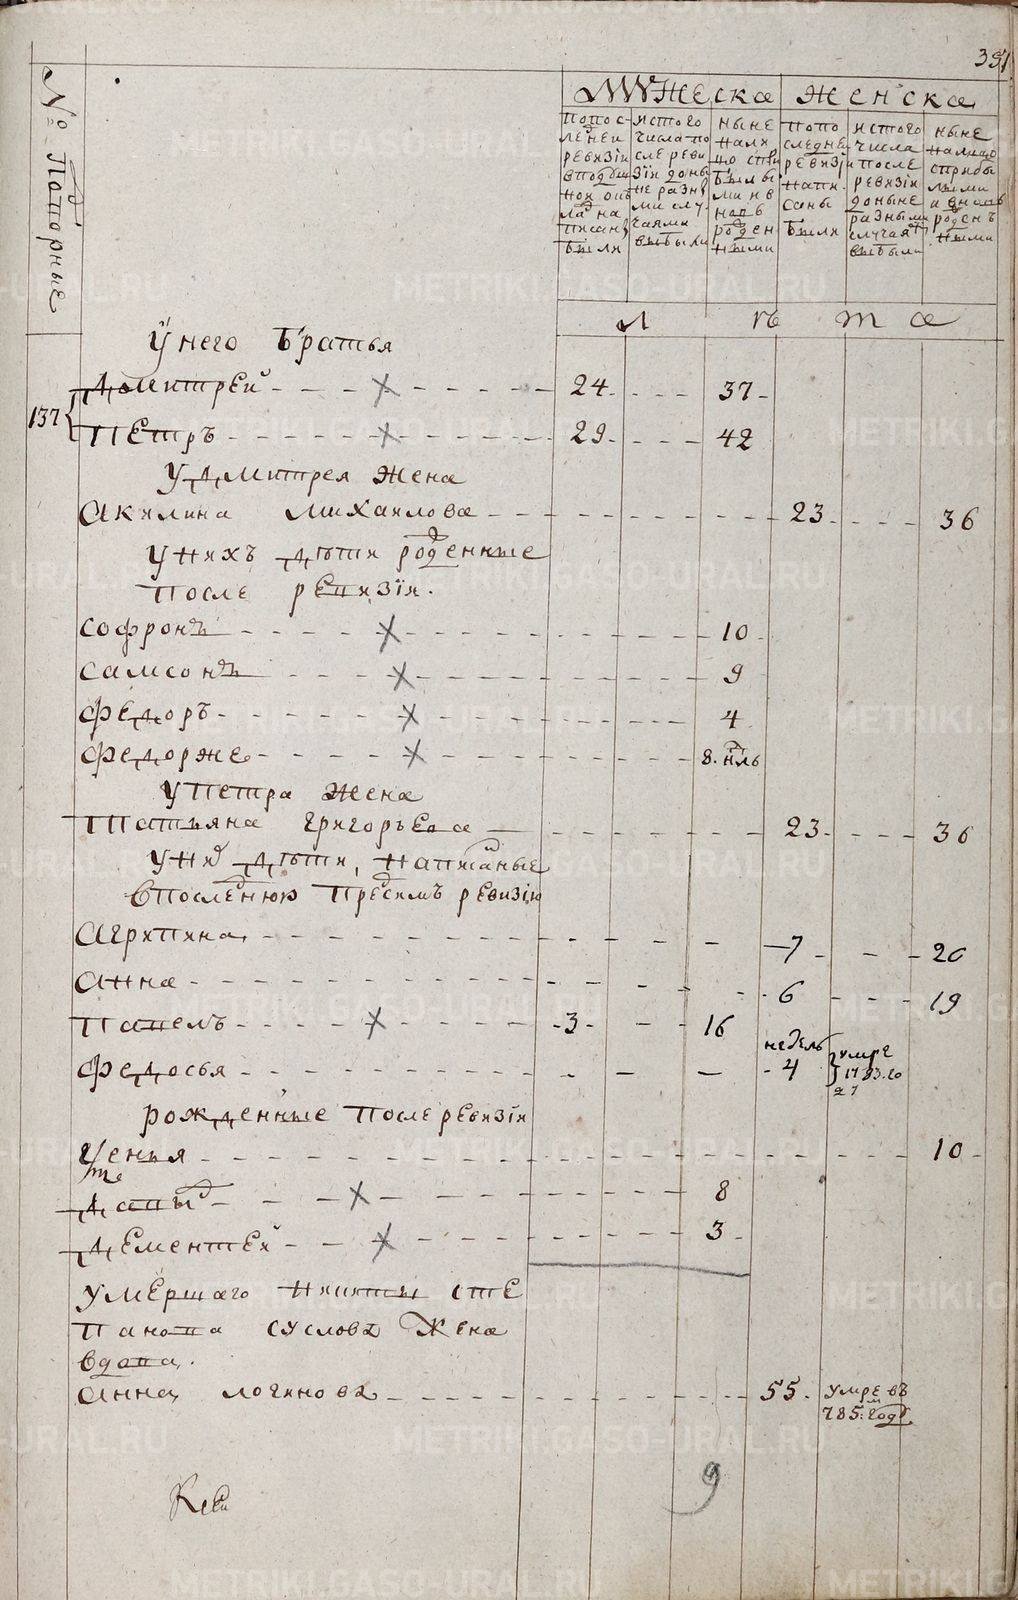 351
№ Подворные
Мужеска Женска
По послѣдней ревизіи в подушной окладъ написаны были
из того числа после ревизіи доныне разными случаями выбыли
ныне на лицо с прибылыми и вновь рожденными
По последней ревизіи написаны были
из того числа после ревизіи доныне разными случаями выбыли
ныне на лицо с прибылыми и вновь рожденными
лѣта
У него Братья
137 Дмитрей 24 37
Петръ 29 42
У Дмитрея Жена
Акилина Михаилова 23 36
У нихъ дѣти роденные
После ревизіи.
Софронъ 10
Самсонъ 9
Федоръ 4
Федорже 8. нль
У Петра Жена
Татьяна Григорьева 23 36
У них дѣти, написаные
в последнюю пред симъ ревизію
Агрипина 7 20
Анна 6 19
Павелъ 3 16
недель
Федосья 4 умре
1783. го
рожденные После ревизіи
10
Давыд 8
Дементей 3
Умершаго Никиты Сте
панова Суслова Жена
вдова.
Анна Логинова 55 умре въ
785: м году
9